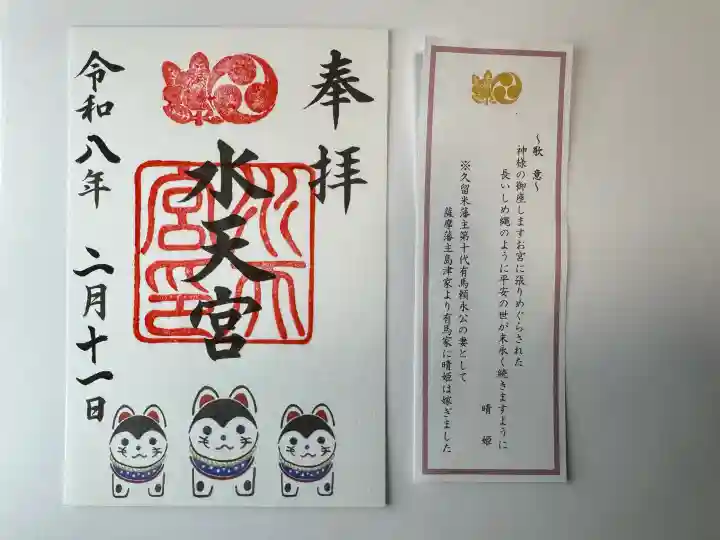 奉拝
水天宮
令和八年 二月十一日
水天宮印
〜歌 意〜
神様の御座しますお宮に張りめぐらされた
長いしめ縄のように平安の世が末永く続きますように
晴 姫
※久留米藩主第十代有馬頼永公の妻として
薩摩藩主島津家より有馬家に晴姫は嫁ぎました